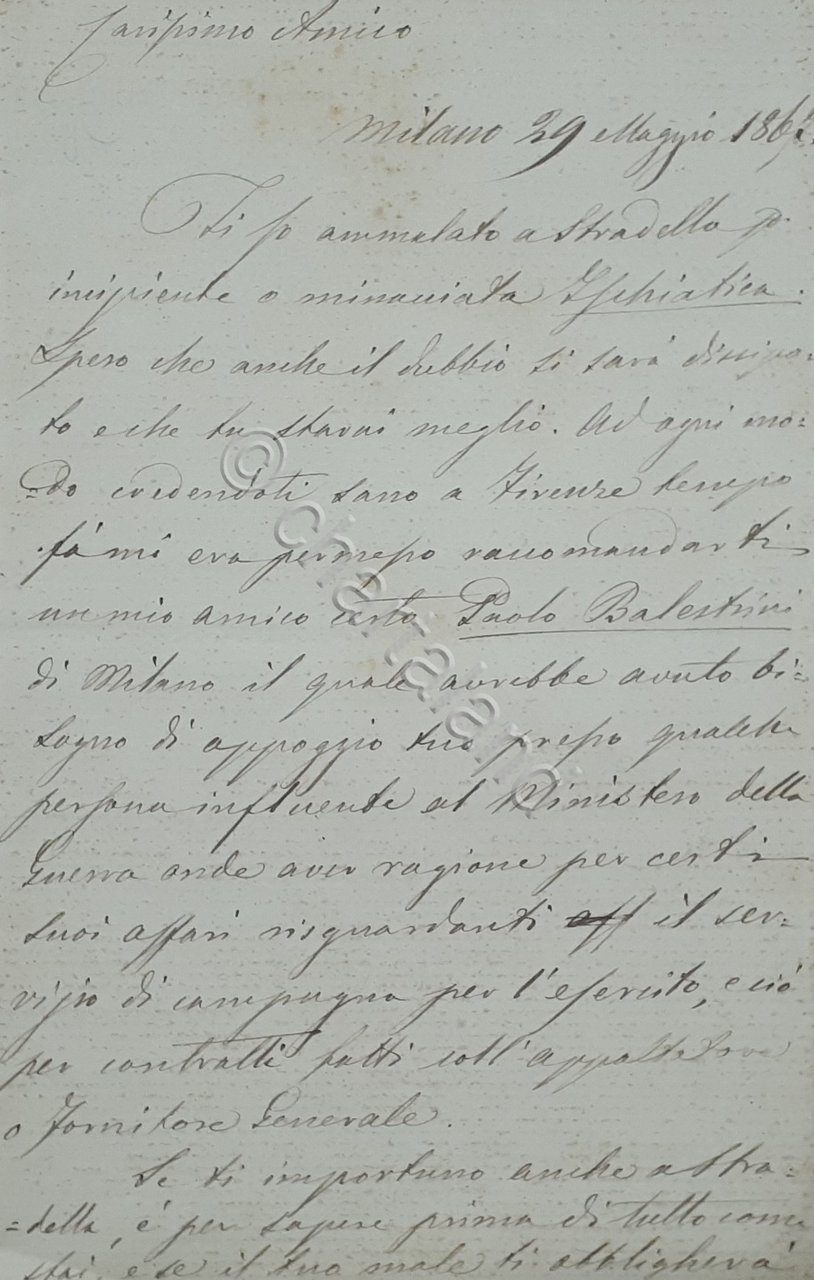 Carissimo Amico
Milano 29 Maggio 186
Ti so ammalato a Stradella p.
incipiente o minacciata Ischiatica.
Spero che anche il dubbio si sarà dissipa=
to e che tu starai meglio. Ad ogni mo=
=do credendoti sano a Firenze tempo
fà mi era permesso raccomandarti
un mio amico certo Paolo Balestrini
di Milano il quale avrebbe avuto bi=
sogno di appoggio tuo presso qualche
persona influente al Ministero della
Guerra onde aver ragione per certi
suoi affari risguardanti aff il ser=
vizio di campagna per l'esercito, e ciò
per contratti fatti coll'appaltatore
o Fornitore Generale.
Se ti importuno anche a Stra=
=della, è per sapere prima di tutto come
stai, e se il tuo male ti obbligherà
© chartaland